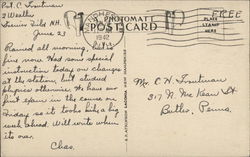 Pvt. C. Troutman
Grenier Field N.H.
June 23
PHOTOMATT
POST CARD
1942
FREE
PLACE
STAMP
HERE
Rained all morning, but it's
fine now. Had some special
instruction today on charges
at the station, but studied
physics otherwise. We have our
first exam in the course on
Friday so it looks like a big
week ahead. Will write when
its over.
Chas.
Mr. C. H. Troutman
317 N. McKean St
Butler, Penna.